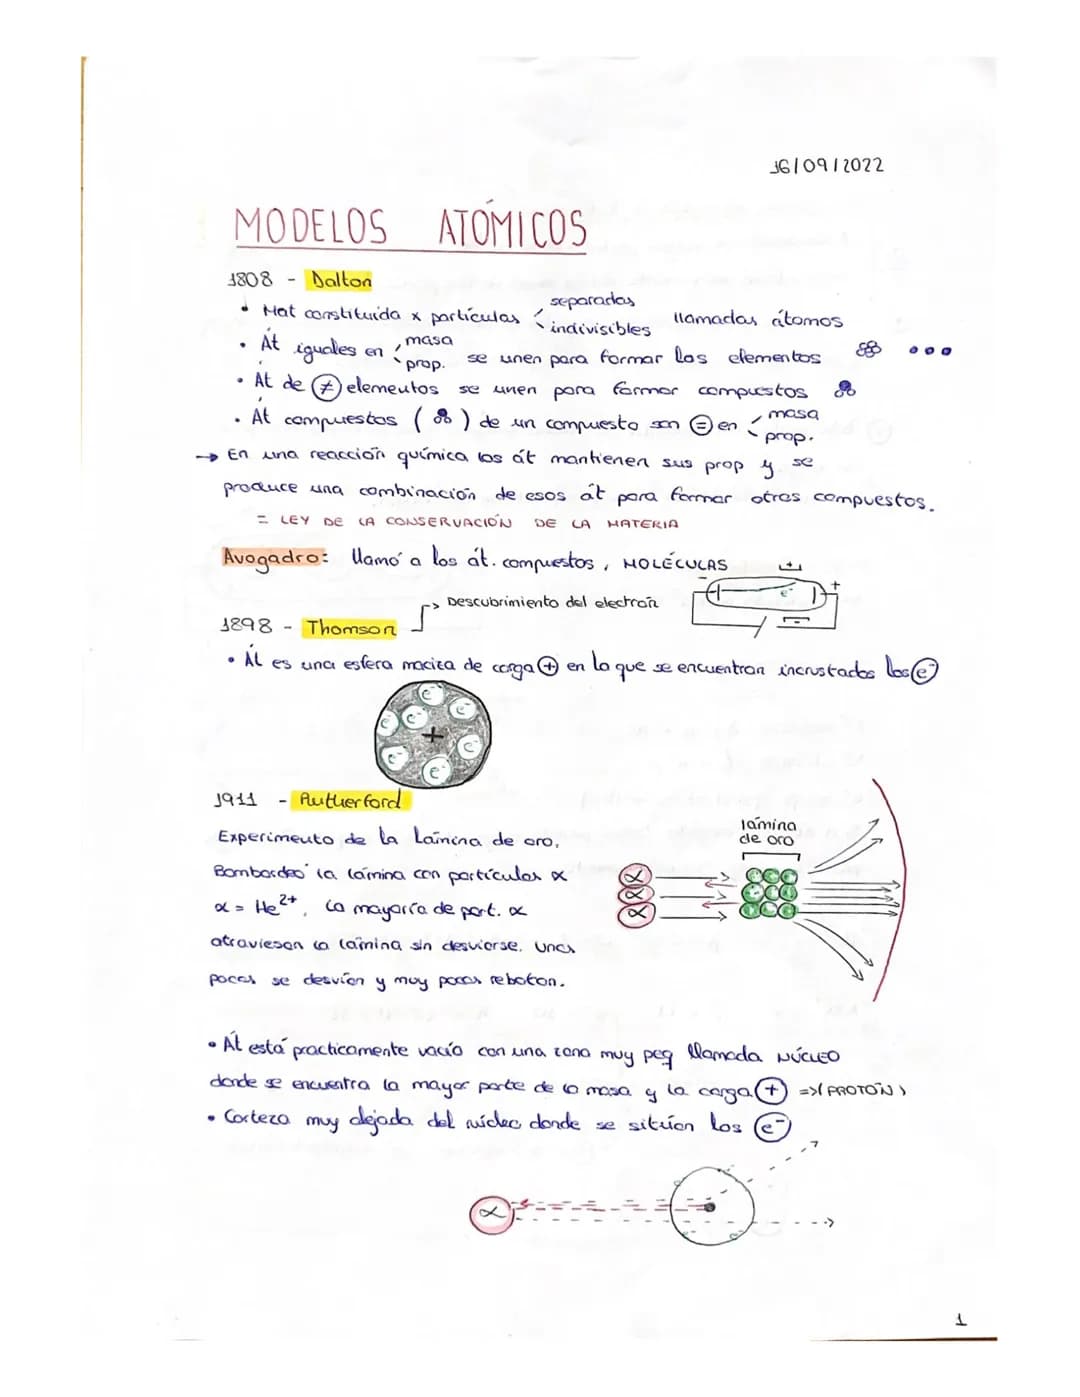 16/09/2022
MODELOS ATÓMICOS
1808 - Dalton
• Mat constituida x partículas < separadas indivisibles llamadas átomos
• Át iguales en < masa prop. se unen para formar los elementos
• Át de ≠ elementos se unen para formar compuestos
• Át compuestos ( ) de un compuesto son = en < masa prop.
→ En una reacción química los át mantienen sus prop y se
produce una combinación de esos át para formar otros compuestos.
= LEY DE LA CONSERVACIÓN DE LA MATERIA
Avogadro: llamó a los át. compuestos, MOLÉCULAS
- + e- + -
→ Descubrimiento del electrón
1898 - Thomson
• Át es una esfera maciza de carga + en la que se encuentran incrustados los e-
e- e- e- e- + e- e- e-
1911 - Rutherford
Experimento de la Lámina de oro.
Bombardeó la lámina con partículas α
α = He2+. La mayoría de part. α
atraviesan la lámina sin desviarse. Unas
pocas se desvían y muy pocas rebotan.
lámina
de oro
α
α
α
• Át está practicamente vacío con una zona muy peq llamada NÚCLEO
donde se encuentra la mayor parte de la masa y la carga + => (PROTÓN)
• Corteza muy alejada del núcleo donde se sitúan los e-
α
1